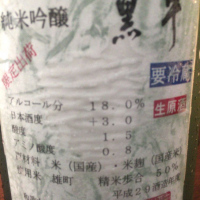 純米吟醸
黒牛
限定出荷
要冷蔵
生原酒
アルコール分 18.0%
日本酒度 +3.0
酸度 1.5
アミノ酸度 0.8
原材料 米(国産)・米麹(国産米)
雄町 精米歩合 50%
平成20酒造